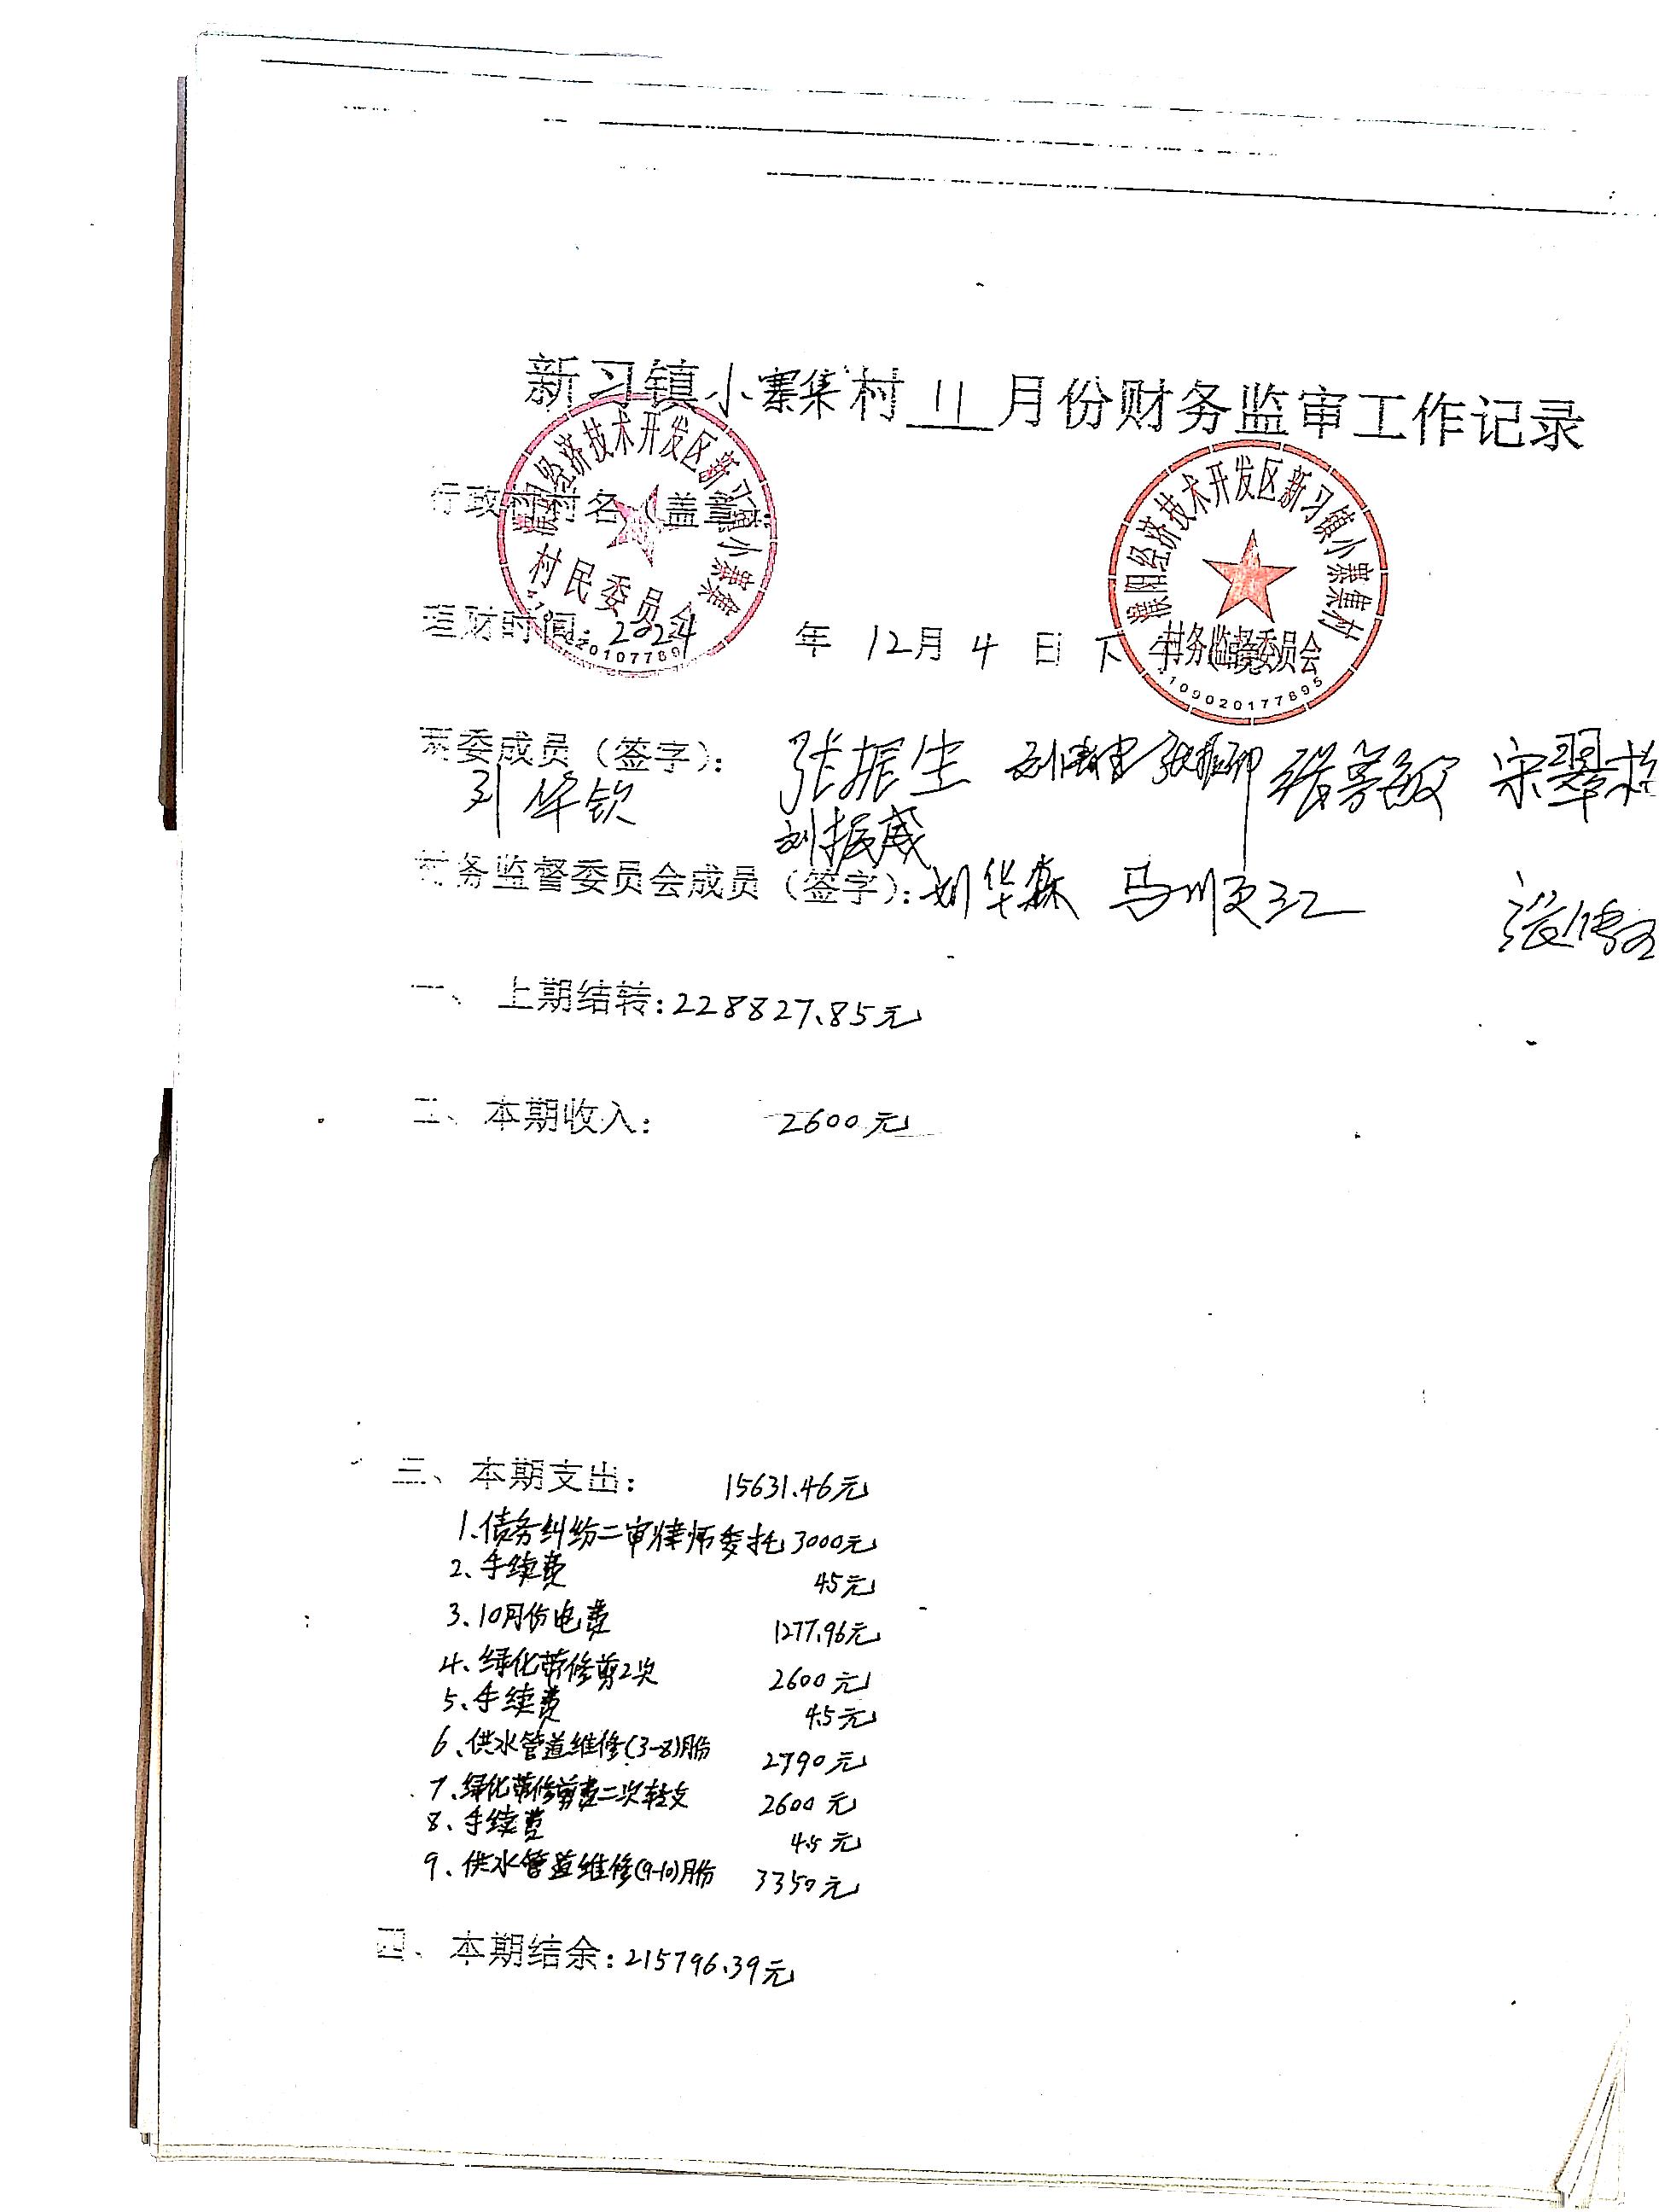 新习镇小寨集村 11 月份财务监审工作记录
濮阳经济技术开发区新习镇小寨集
村民委员会
濮阳经济技术开发区新习镇小寨集村
村务监督委员会
行政村村名（盖章）：
理财时间：2024 年 12月 4 日 下
109020177895
两委成员（签字）： 张振生 张善敏
刘华钦 刘振威
村务监督委员会成员（签字）：刘华森 马顺江
一、 上期结转：228827.85元
二、 本期收入： 2600元
三、本期支出： 15631.46元
1.债务纠纷二审律师委托 3000元
2、手续费 4.5元
3、10月份电费 1277.96元
4、绿化带修剪2次 2600元
5、手续费 4.5元
6、供水管道维修(3-8)月份 2790元
7、绿化带修剪费二次转支 2600元
8、手续费 4.5元
9、供水管道维修(9-10)月份 3350元
四、本期结余：215796.39元